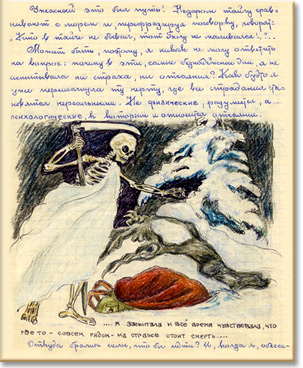 Ужасный это был путь! Недаром тайгу срав-
нивают с морем и, перефразируя поговорку, говорят:
"Кто в тайге не бывал, тот Богу не маливался!"...
Может быть, потому, я никак не могу ответить
на вопрос: почему в эти, самые безнадежные дни, я не
испытывала ни страха, ни отчаяния? Как будто я
уже перешагнула ту черту, где все страдания ста-
новятся нереальными. Не физические, разумеется, а...
психологические, к которым и относится отчаяние.
.... я засыпала и всё время чувствовала, что
где-то - совсем рядом - на страже стоит смерть....
Откуда брались силы, что бы идти? И, когда я, обесси-